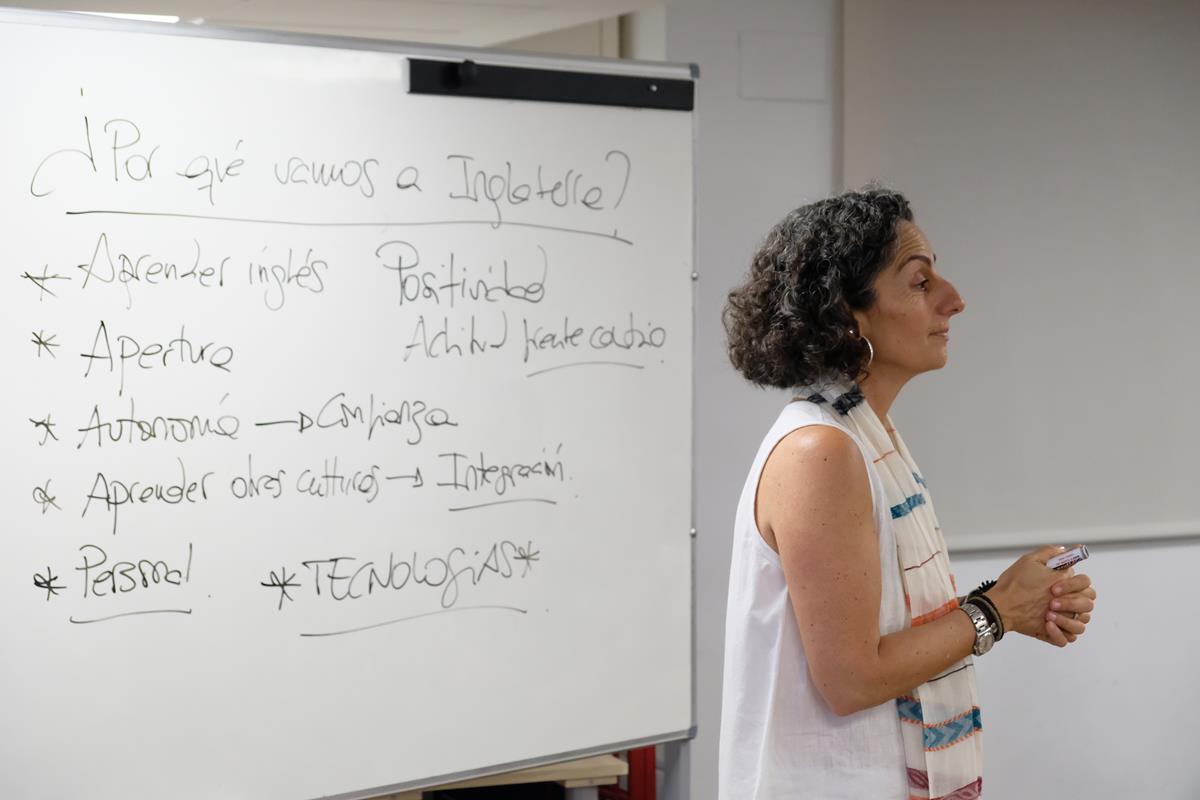 ¿Por qué vamos a Inglaterra?
* Aprender inglés Positividad
* Apertura Actitud frente cambio
* Autonomía → Confianza
* Aprender otras culturas → Integración.
* Personal. * TECNOLOGíAS *